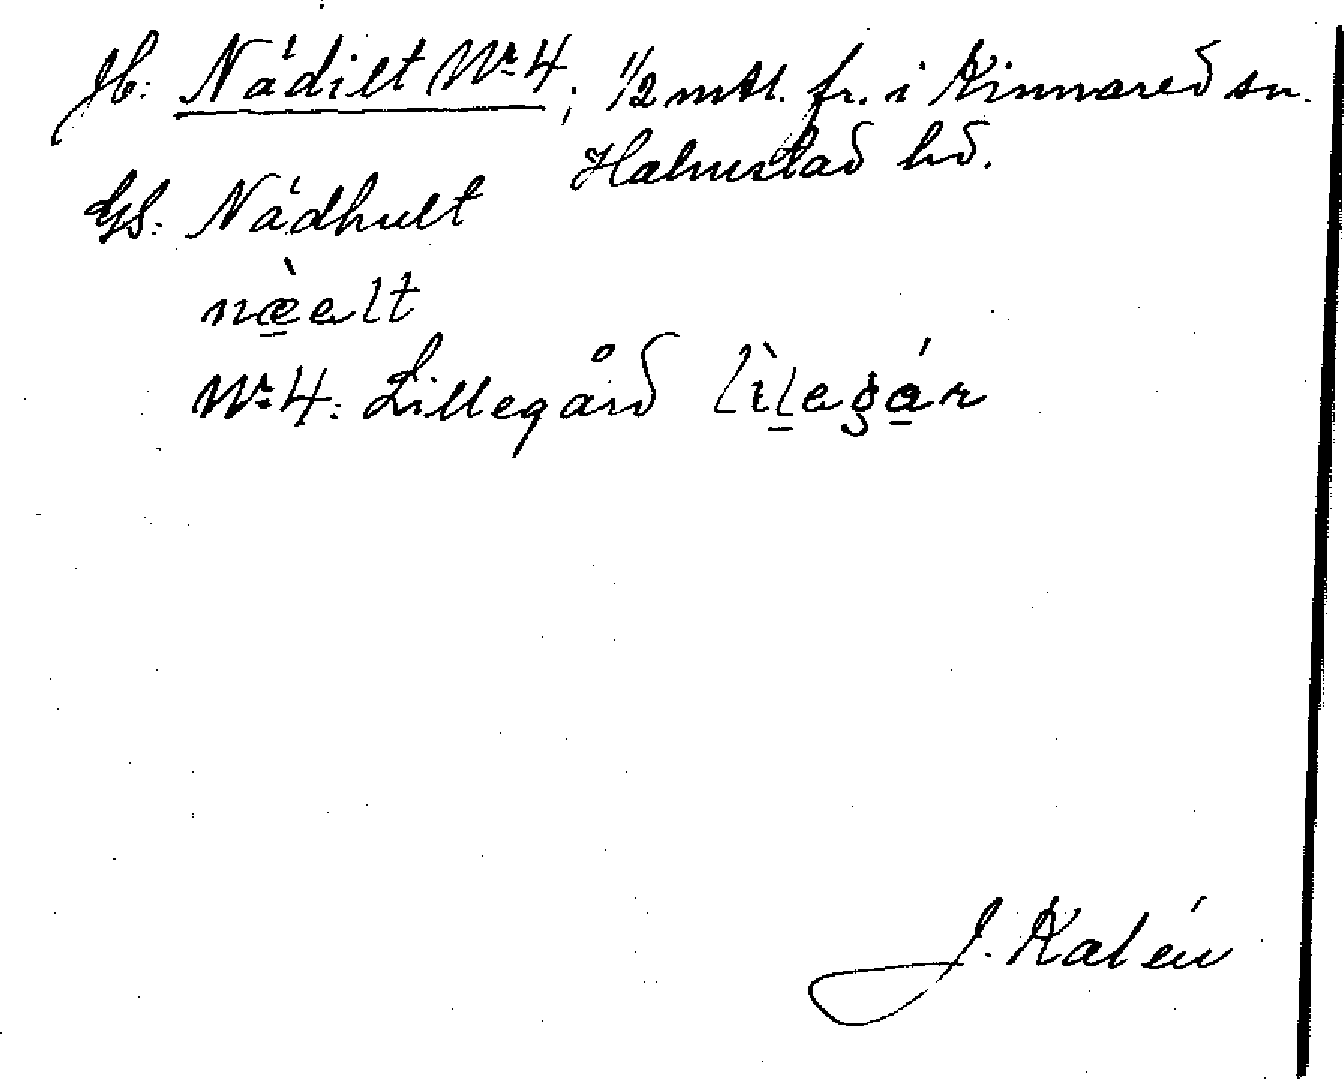 Jb: Nádilt Nr 4; 1/2 mtl. fr. i Kinnared sn.
Halmstad hd.
GS: Nádhult
næ̀ealt
Nr 4: Lillegård lìlegár
J. Kalén